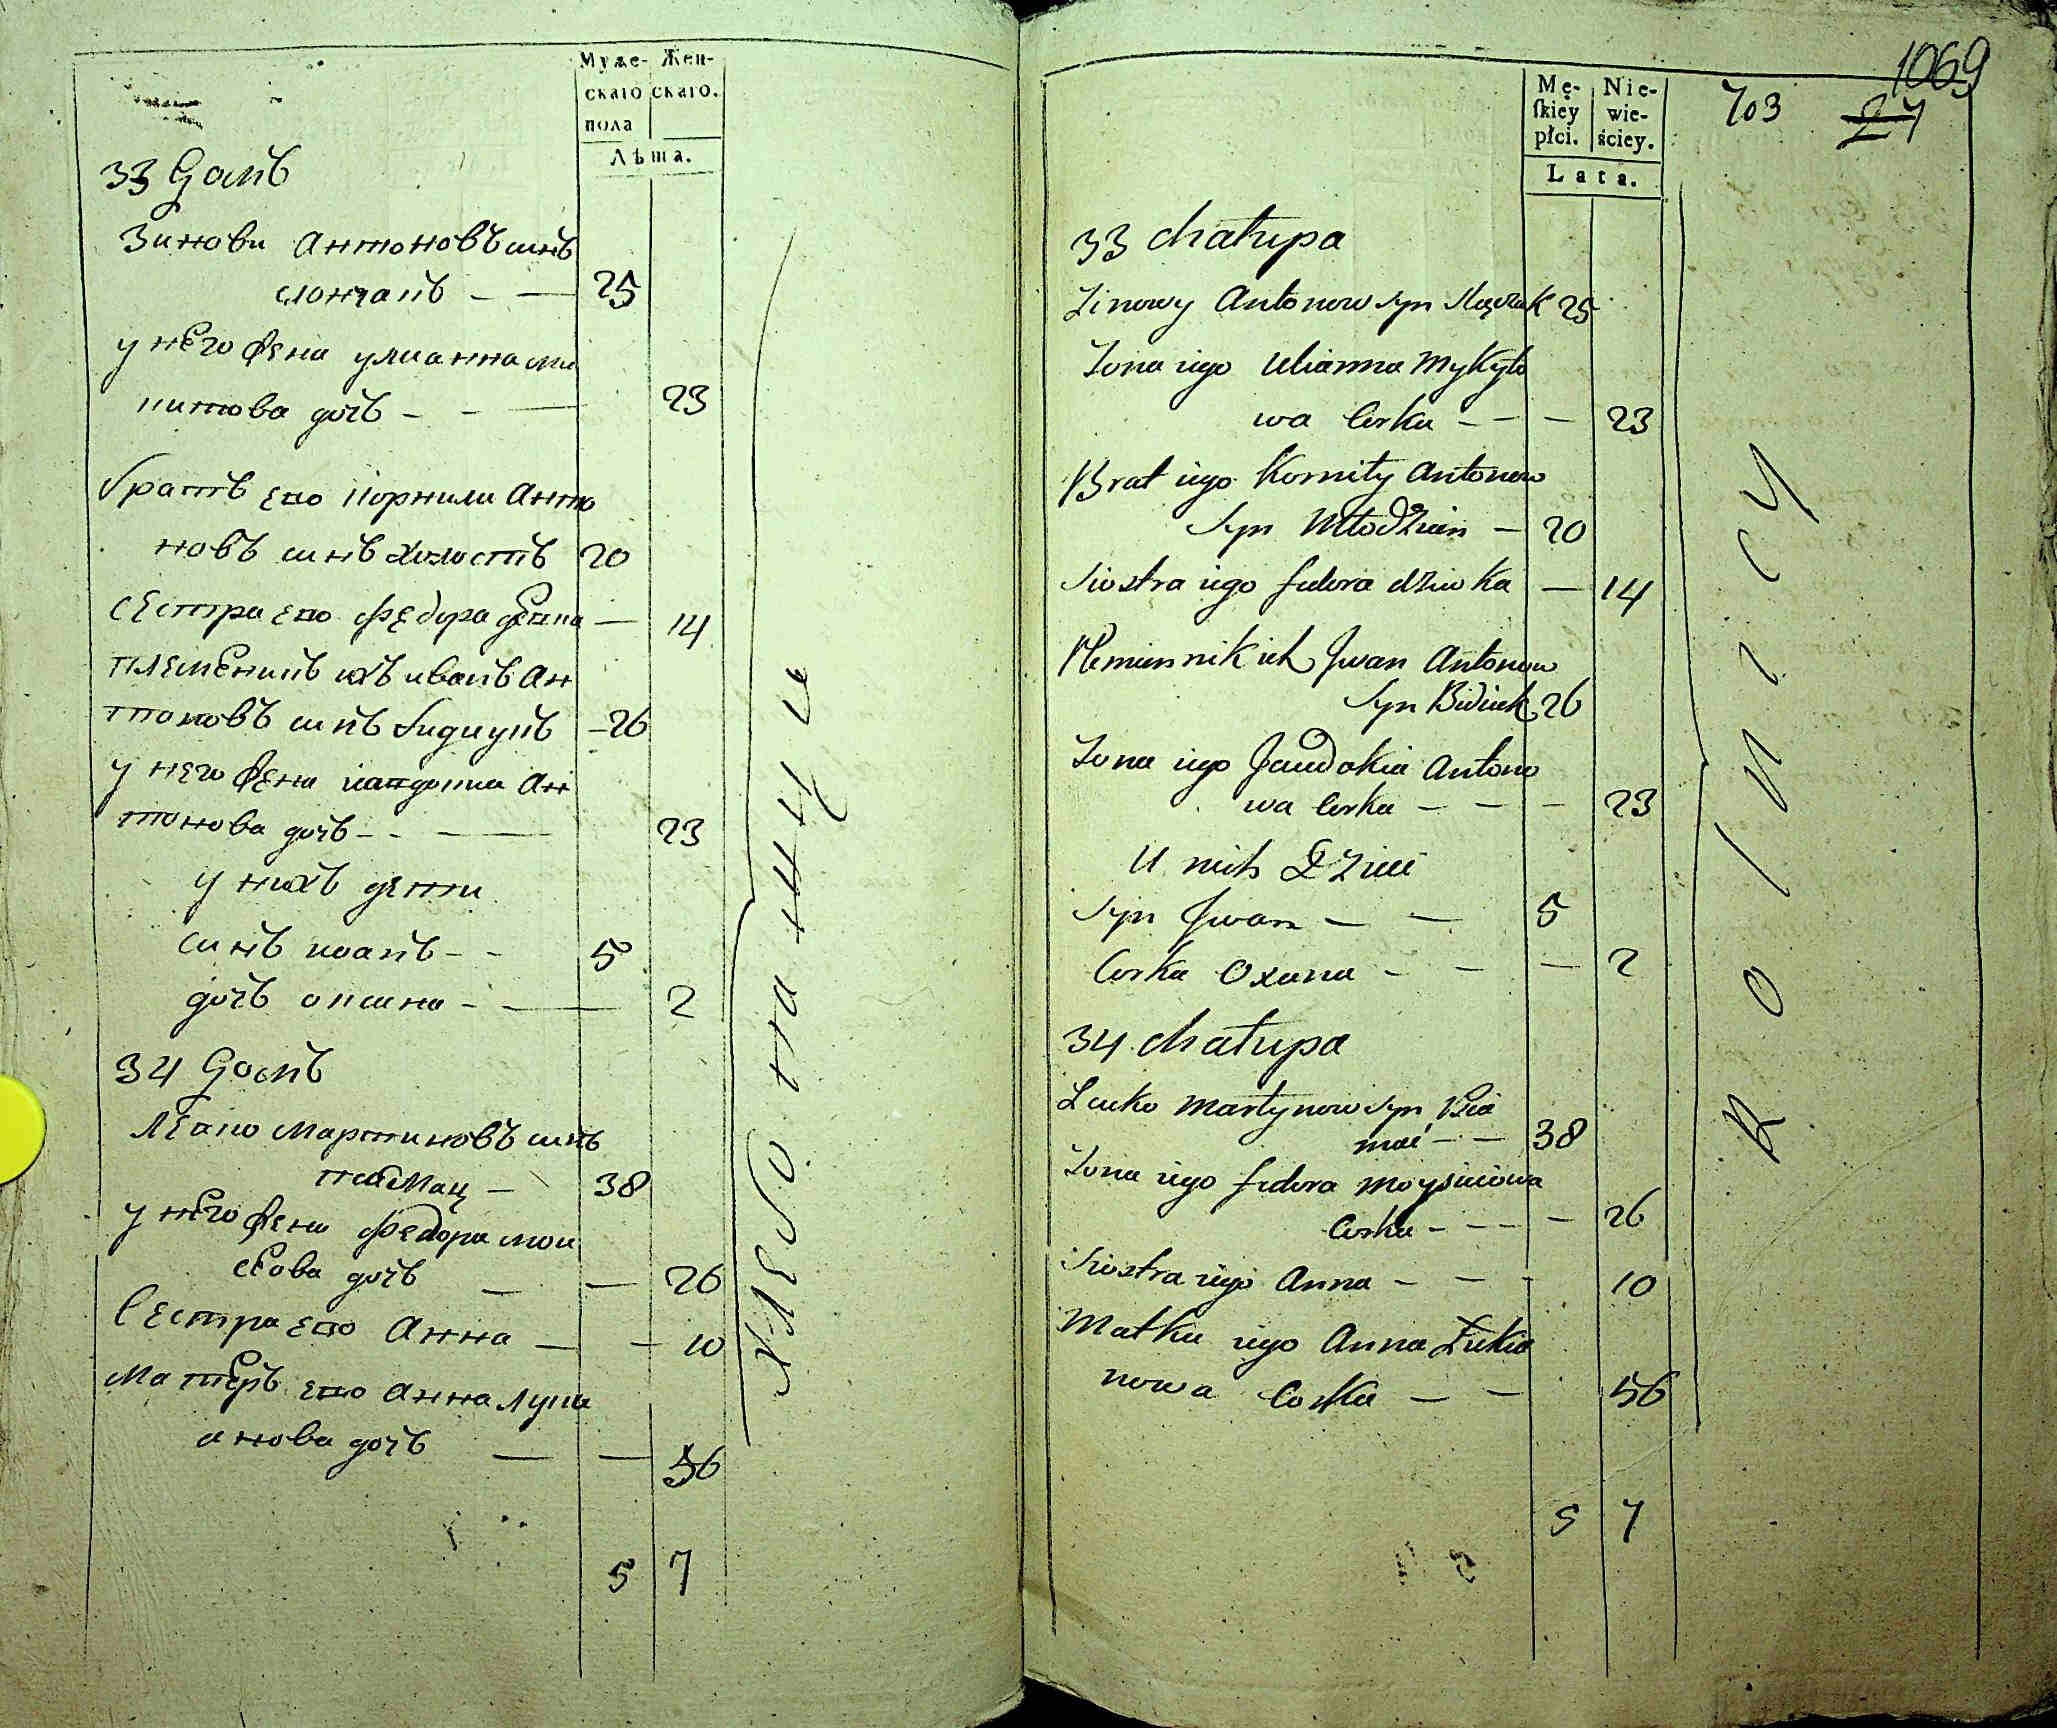 Муже- Жен-
скаго скаго.
пола
Лѣта.
33 Домъ
Зинови Антоновъ синъ
25
у него жена улианна ми
китова дочь - - — 23
братъ его корнили Анто
новъ синъ холостъ 20
сестра его Федора девка — 14
племеникъ ихъ иванъ Ан
тоновъ синъ -26
у него жена иавдокиа Ан
тонова дочь - - — 23
у нихъ дети
синъ иванъ - - 5
дочь оксана - — 2
34 Домъ
Леско Мартиновъ синъ
38
у него жена Федора мои
сеова дочь — — 26
Сестра его Анна — - 10
Матеръ его Анна Луки
анова дочь — — 56
5 7
хлебопашци
1069
703 27
Mę- Nie-
ſkiey wie-
płci. ściey.
Lata.
33 chałupa
Zinowy Antonow syn 25
Zona iego Ulianna Mykyto
wa Corka - - - 23
Brat iego Korniły Antonow
syn Młodzien - 20
Siostra iego fedora dziwka — 14
Plemiennik ich Jwan Antonow
syn 26
Zona iego Jewdokia Antono
wa Corka - - - 23
U nich Dzieci
Syn Jwan - - 5
Corka Oxana - - - 2
34 chałupa
Lesko Martynow syn
- - 38
Zona iego fedora Moysieiowa
Corka - - - - 26
Siostra iego Anna - - - 10
Matka iego Anna Łukia
nowa Corka - - 56
5 7
Rolnicy